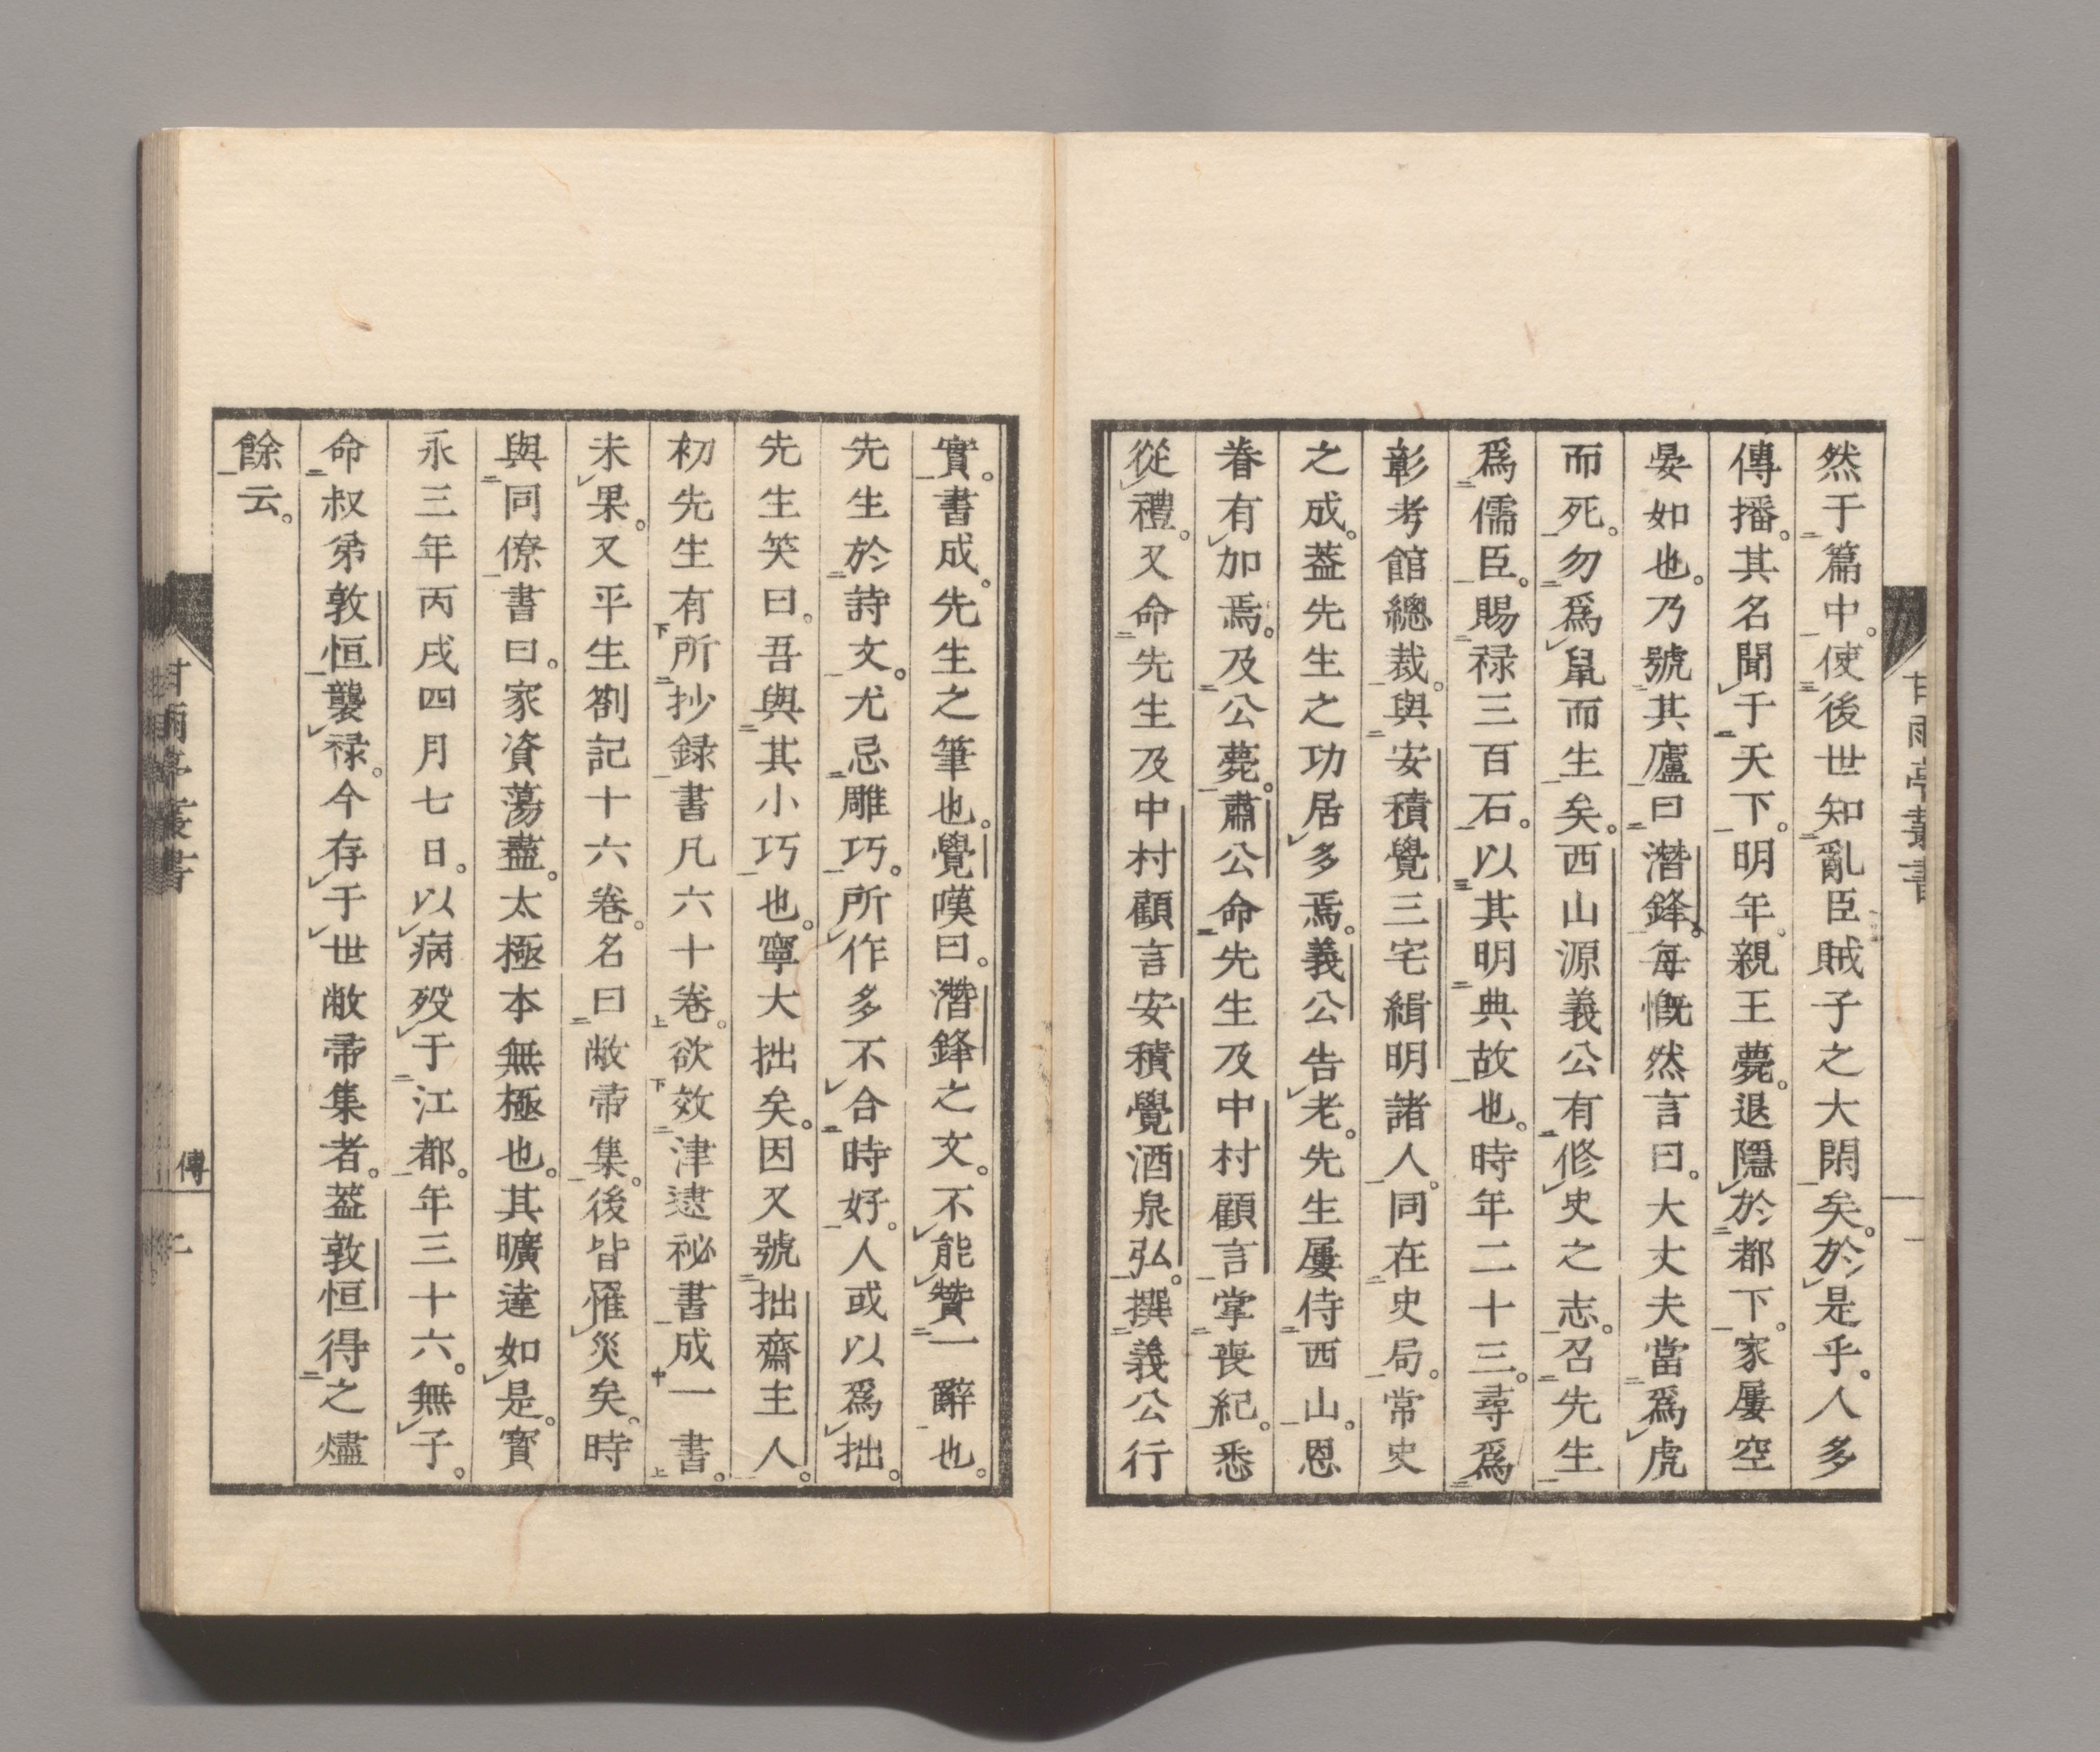 甘雨亭叢書
然于篇中。使後世知亂臣賊子之大閑矣。於是乎。人多
傳播。其名聞于天下。明年。親王薨。退隱於都下。家屢空
晏如也。乃號其廬曰潛鋒。每慨然言曰。大丈夫當爲虎
而死。勿爲鼠而生矣。西山源義公有修史之志。召先生
爲儒臣。賜祿三百石。以其明典故也。時年二十三。尋爲
彰考館總裁。與安積覺三宅緝明諸人。同在史局。常史
之成。葢先生之功居多焉。義公告老。先生屢侍西山。恩
眷有加焉。及公薨。肅公命先生及中村顧言掌喪紀。悉
從禮。又命先生及中村顧言安積覺酒泉弘。撰義公行
實。書成。先生之筆也。覺嘆曰。潛鋒之文。不能贊一辭也。
先生於詩文。尤忌雕巧。所作多不合時好。人或以爲拙。
先生笑曰。吾與其小巧也。寧大拙矣。因又號拙齋主人。
初先生有所抄録書凡六十卷。欲效津逮祕書成一書。
未果。又平生劄記十六卷。名曰敝帚集。後皆罹災矣。時
與同僚書曰。家資蕩盡。太極本無極也。其曠達如是。寳
永三年丙戌四月七日。以病歿于江都。年三十六。無子。
命叔弟敦恒襲祿。今存于世敝帚集者。葢敦恒得之燼
餘云。
甘雨亭叢書
傳
二